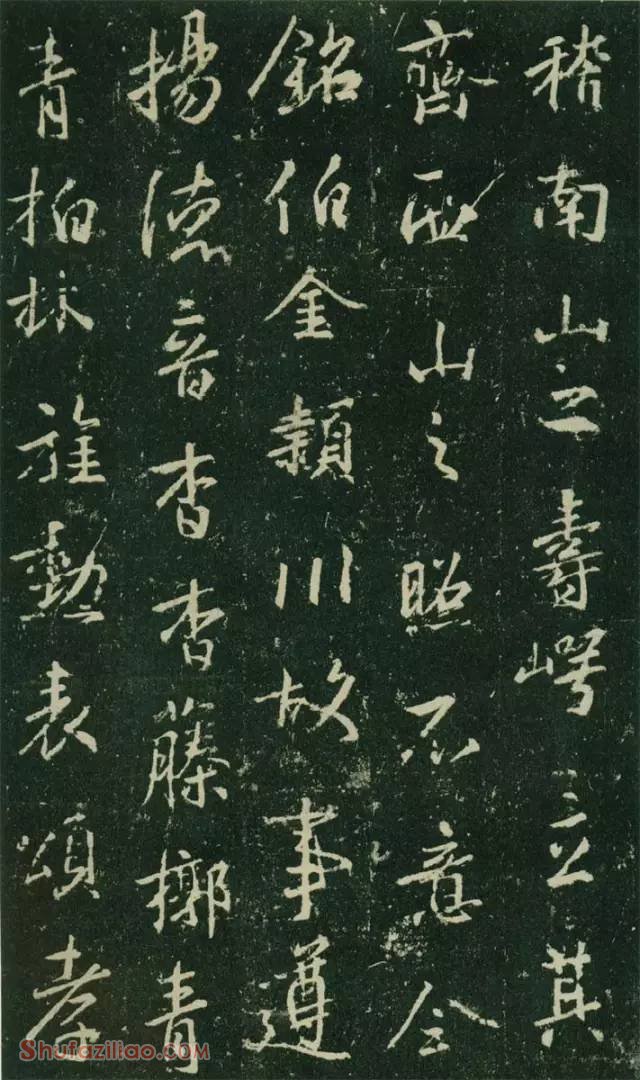 稽南山之壽崿立其
齊山之照不意令
銘伯金穎川故事遵
揚德音杳杳藤槨青
青柏林旌勳表頌孝
Shufaziliao.com